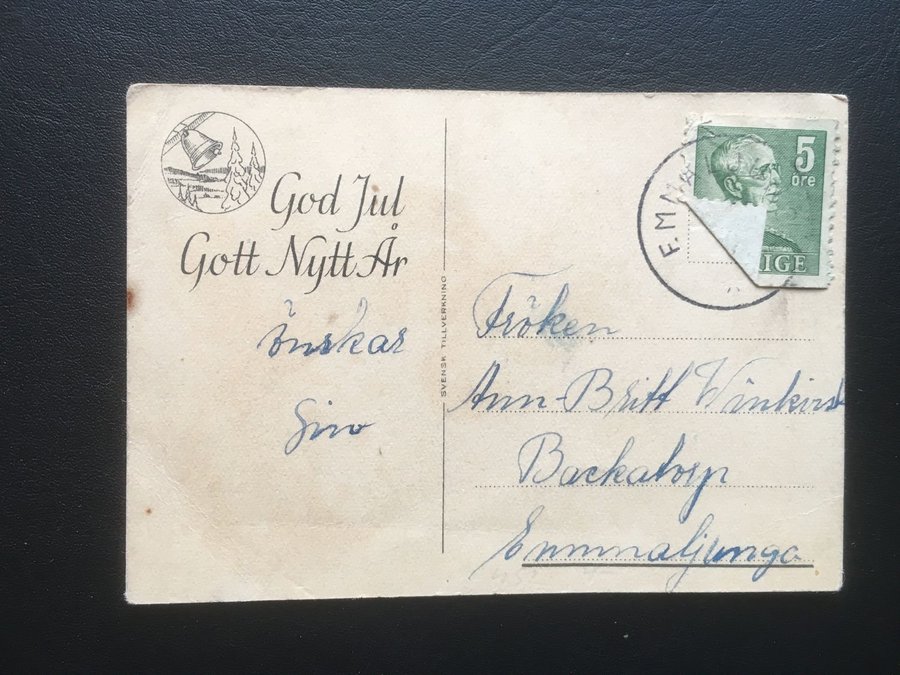 God Jul
Gott Nytt År
önskar
SVENSK TILLVERKNING
5
öre
IGE
F.M
Fröken
Ann-Britt
Backatorp
Emmaljunga